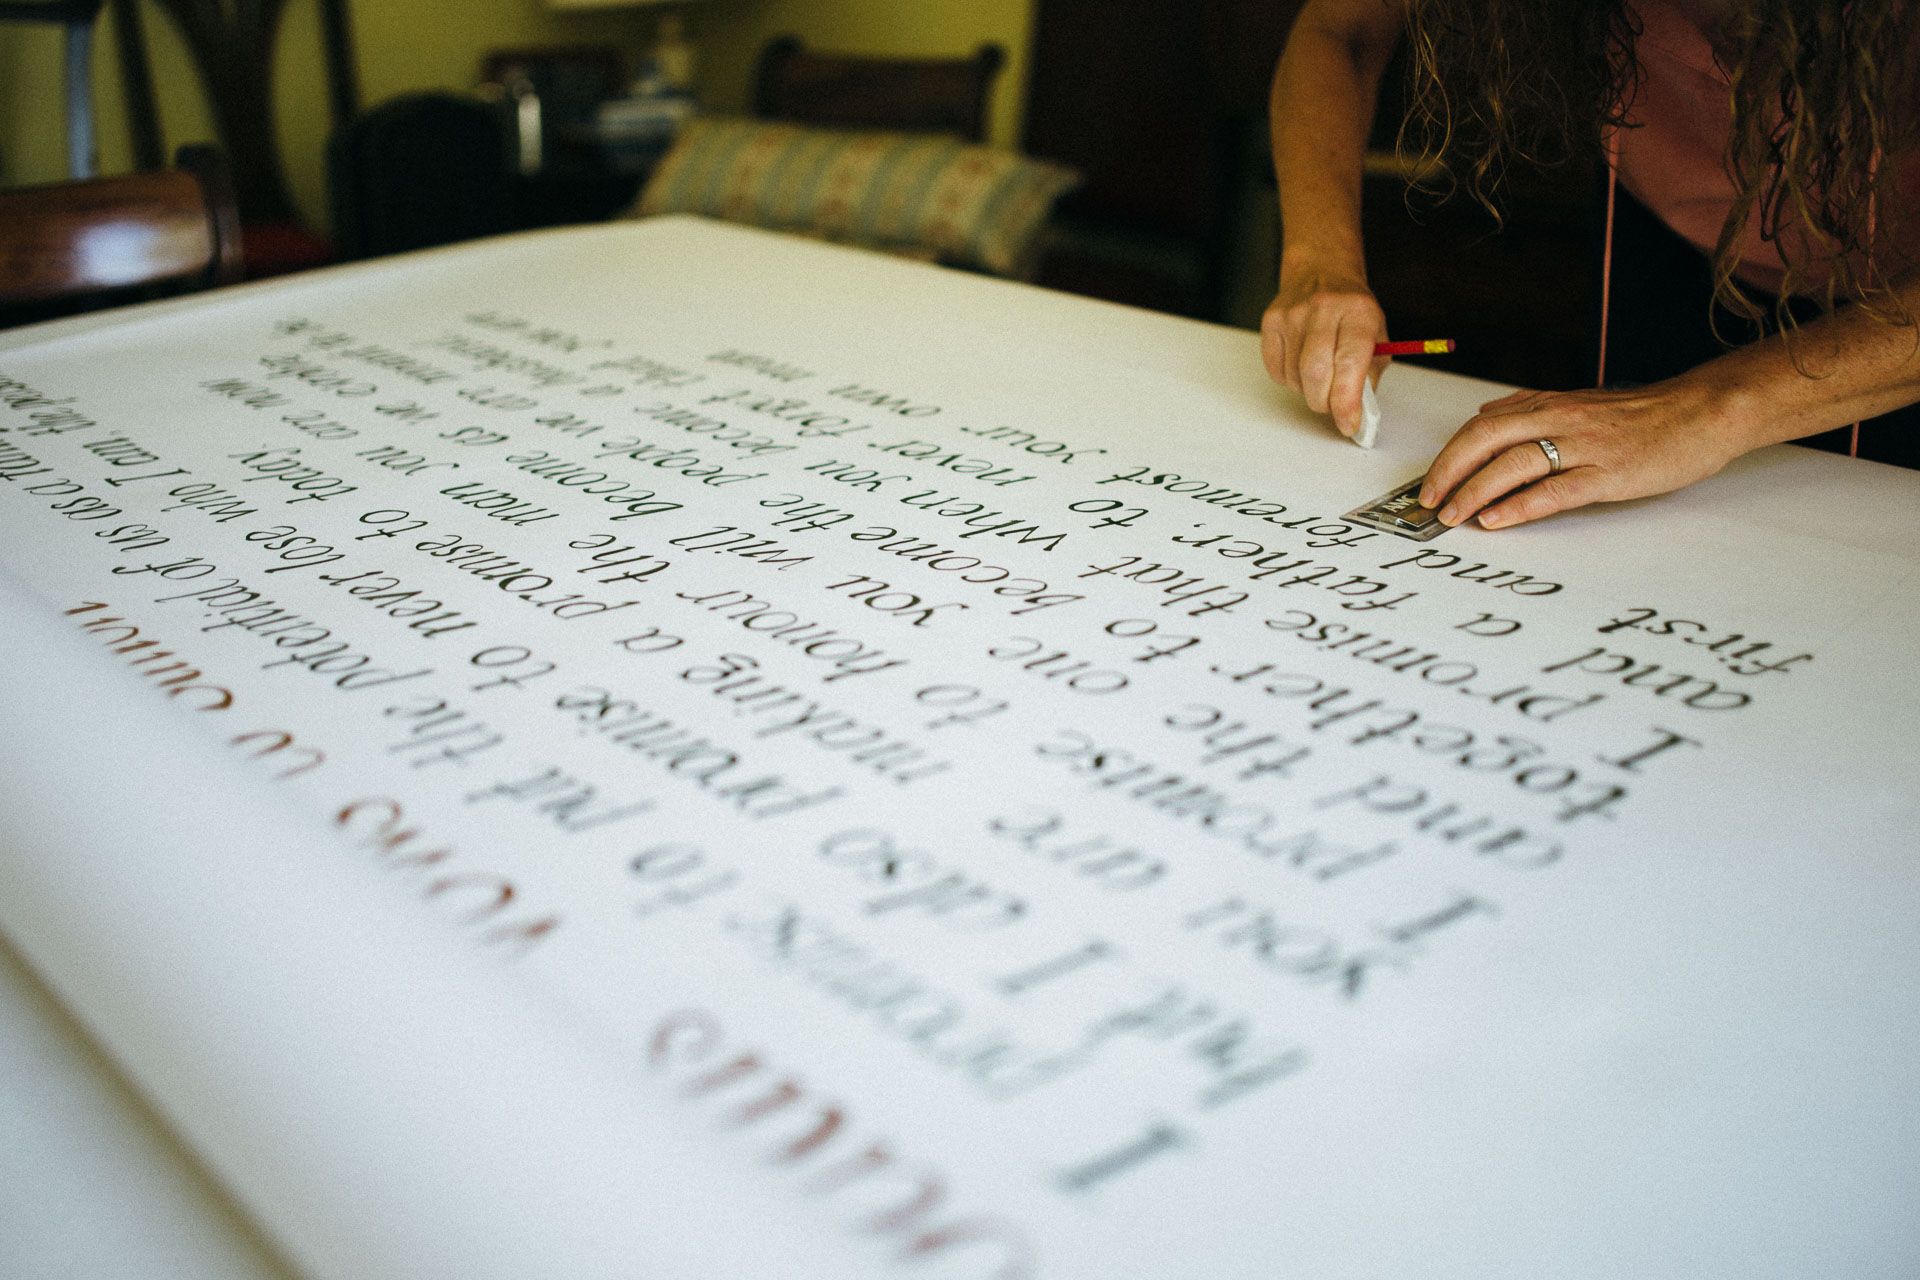 I promise to put the potential of us as a
but I also promise to never lose who I am, the
you are making a promise to today.
I promise to honour the man you are now
and the one you will become as we evolve
together to become the people we are meant to be
I promise that when you become a husband,
and a father, to never forget that you are
first and foremost your own man